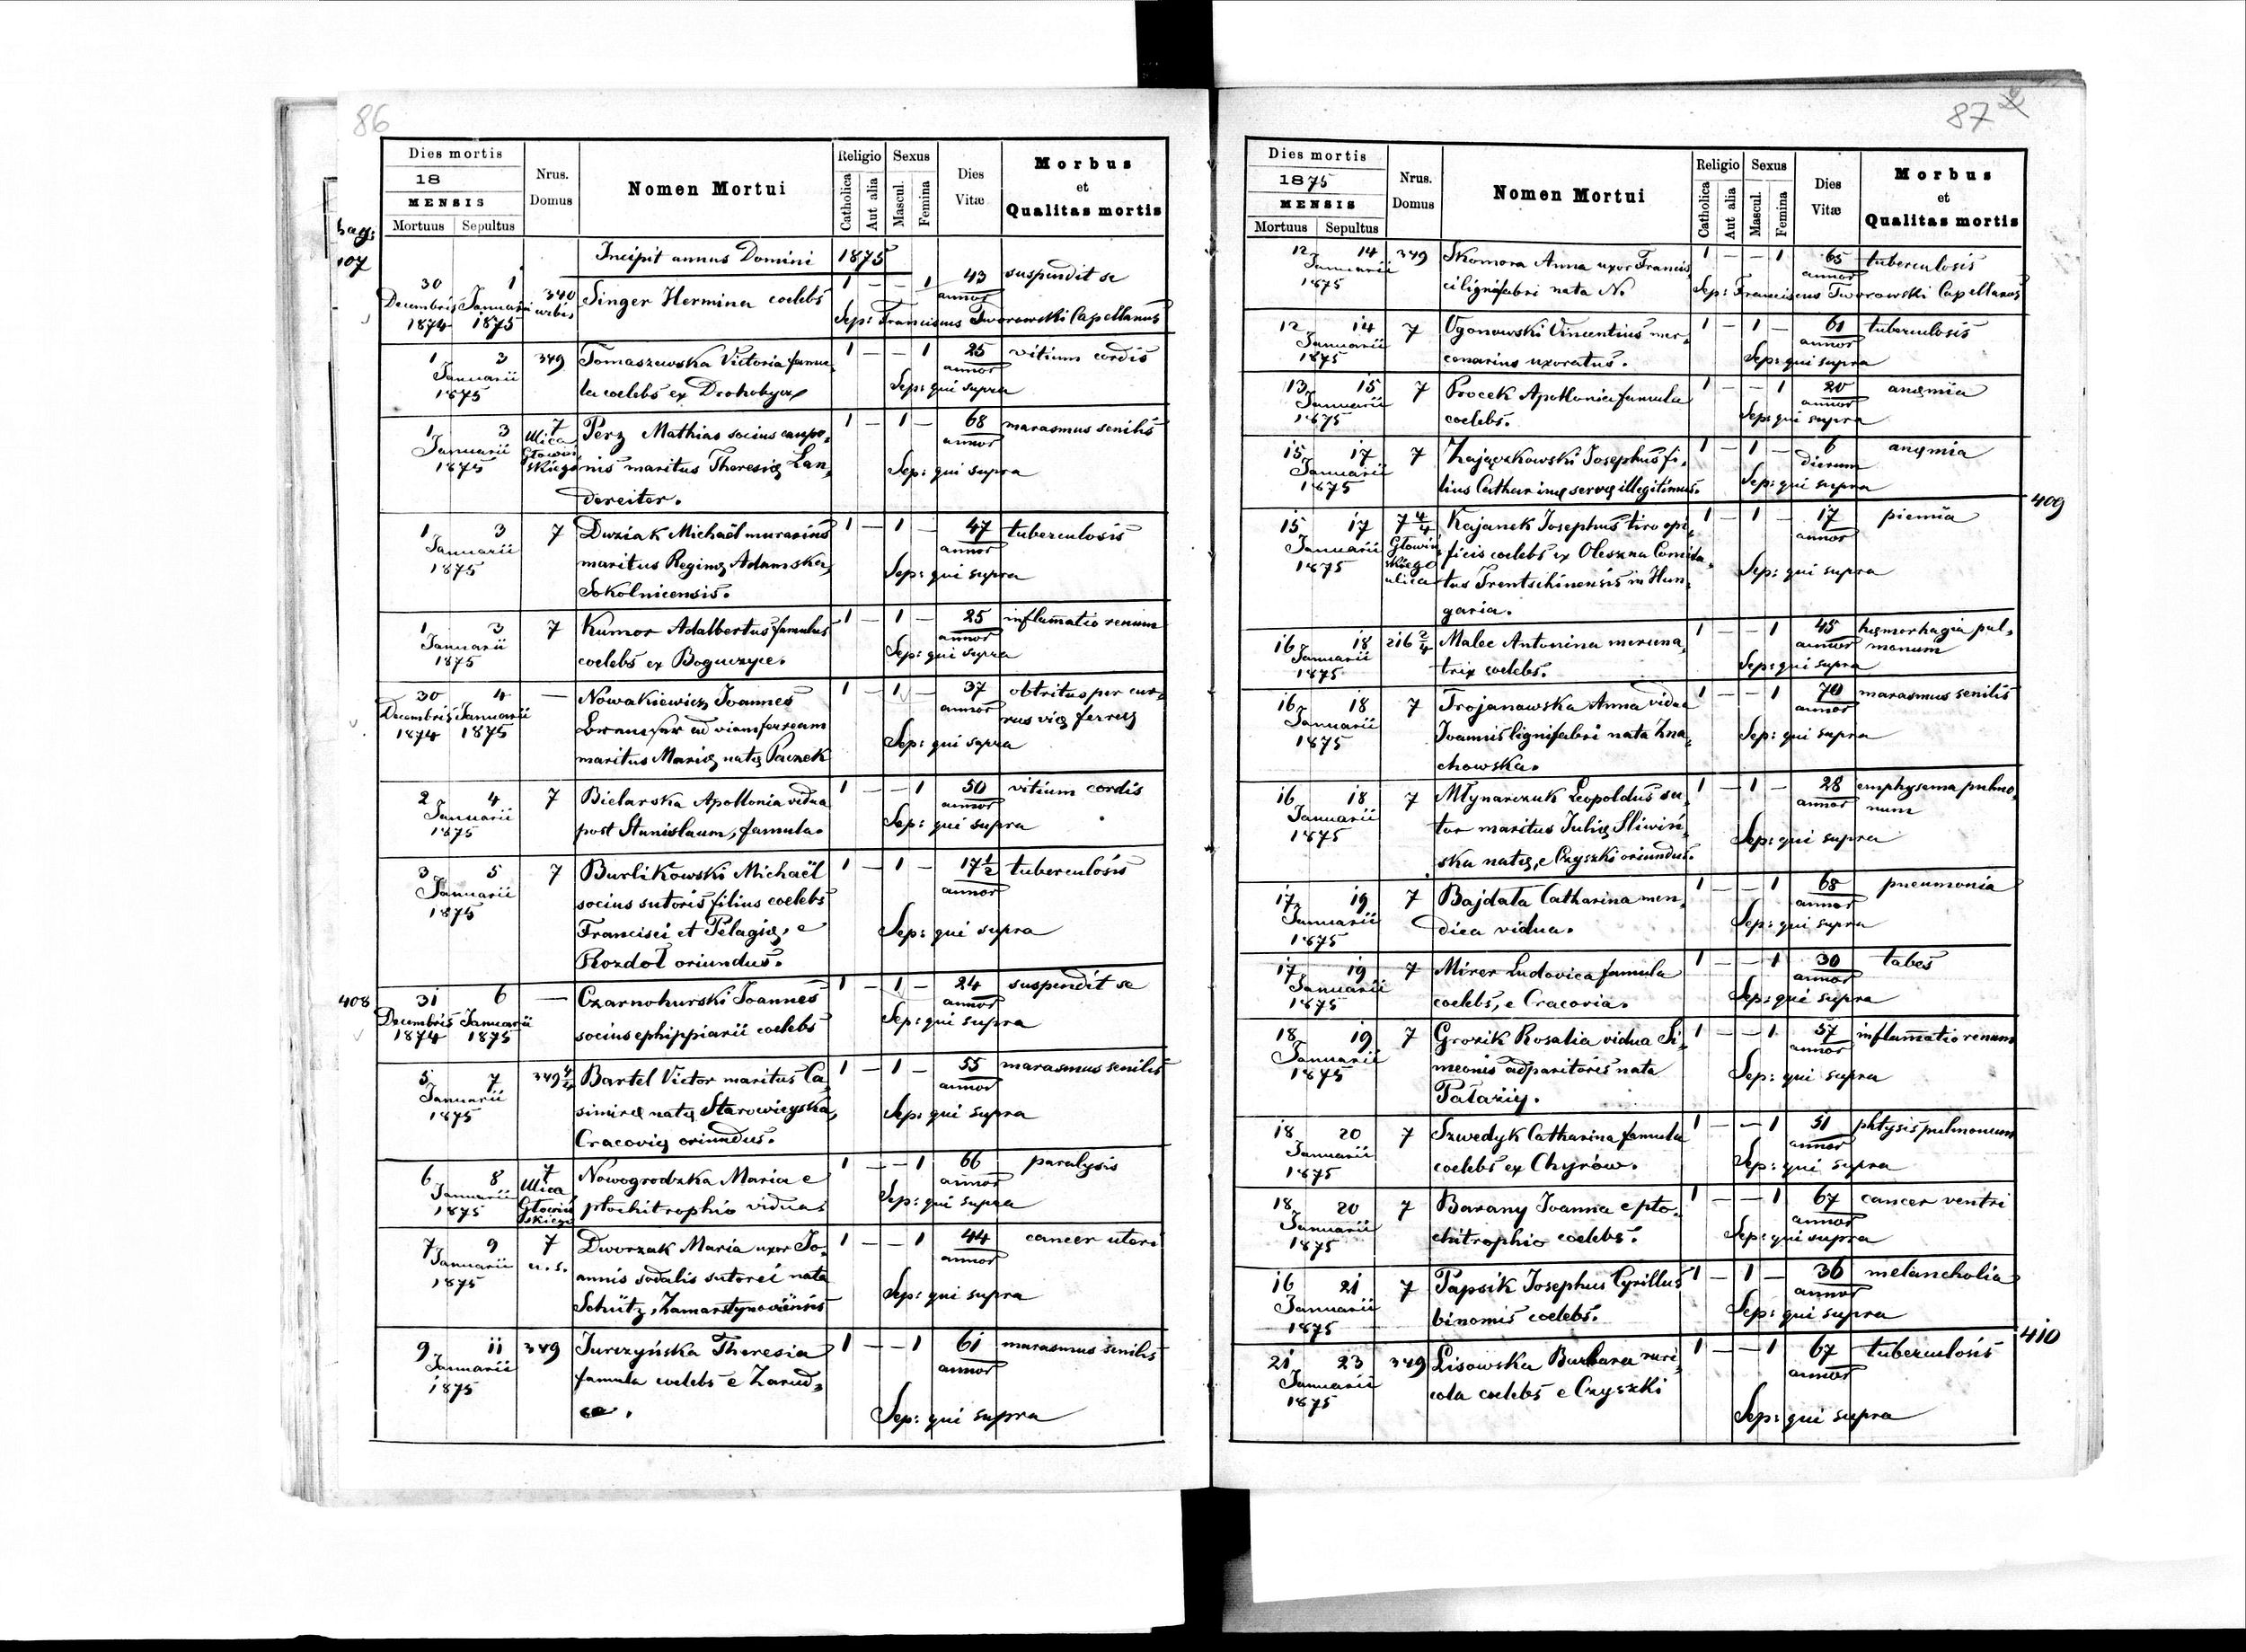 86
Dies mortis
18
MENSIS
Mortuus Sepultus
Nrus. Domus
Nomen Mortui
Religio
Catholica Aut alia
Sexus
Mascul. Femina
Dies Vitæ
Morbus
et
Qualitas mortis
pag:
107
Incipit annus Domini 1875
30 1 340 Singer Hermina coelebs 1 — — 1 43 suspendit se
Decembris Januarii urbis annor
1874 1875 Sep: Franciscus Tworowski Capellanus
1 3 349 Tomaszewska Victoria famu, 1 — — 1 25 vitium cordis
Januarii annor
1875 la coelebs ex Drohobycz Sep: qui supra
1 3 7 Perz Mathias socius caupo, 1 — 1 — 68 marasmus senilis
Januarii ulica annor
1875 Głowiń, skiego nis maritus Theresię Lan, Sep: qui supra
dereiter.
1 3 7 Duziak Michaël murarius 1 — 1 — 47 tuberculosis
Januarii maritus Reginę Adamska, annor
1875 Sokolnicensis. Sep: qui supra
1 3 7 Kumor Adalbertus famulus 1 — 1 — 25 inflamatio renum
Januarii annor
1875 coelebs ex Boguczyce. Sep: qui supra
30 4 — Nowakiewicz Joannes 1 — 1 — 37 obtritus per cur,
Decembris Januarii annor rus vię ferreę
1874 1875 ad viam ferream Sep: qui supra
maritus Marię natę Paczek
2 4 7 Bielarska Apollonia vidua 1 — — 1 50 vitium cordis
Januarii annor
1875 post Stanislaum, famula. Sep: qui supra
3 5 7 Burlikowski Michaël 1 — 1 — 17 1/2 tuberculosis
Januarii socius sutoris filius coelebs annor
1875 Francisci et Pelagię, e Sep: qui supra
Rozdoł oriundus.
408
31 6 — Czarnohurski Joannes 1 — 1 — 24 suspendit se
Decembris Januarii annor
1874 1875 socius ephippiarii coelebs Sep: qui supra
5 7 349 4/4 Bartel Victor maritus Ca, 1 — 1 — 55 marasmus senilis
Januarii annor
1875 simirę natę Starowieyska, Sep: qui supra
Cracovię oriundus.
6 8 7 Nowogrodzka Maria e 1 — — 1 66 paralysis
Januarii ulica annor
1875 Głowiń skiego ptochitrophio vidua. Sep: qui supra
7 9 7 Dworzak Maria uxor Jo, 1 — — 1 44 cancer uteri
Januarii u. s. annis sodalis sutorei nata annor
1875 Schütz, Zamarstynoviensis Sep: qui supra
9 11 349 Jurczyńska Theresia 1 — — 1 61 marasmus senilis
Januarii annor
1875 famula coelebs e Zarud,
ce. Sep: qui supra
87
Dies mortis
1875
MENSIS
Mortuus Sepultus
Nrus. Domus
Nomen Mortui
Religio
Catholica Aut alia
Sexus
Mascul. Femina
Dies Vitæ
Morbus
et
Qualitas mortis
12 14 349 Skomora Anna uxor Francis, 1 — — 1 65 tuberculosis
Januarii annor
1875 ci lignifabri nata N. Sep: Franciscus Tworowski Capellanus
12 14 7 Ogonowski Vincentius mer, 1 — 1 — 61 tuberculosis
Januarii annor
1875 cenarius uxoratus. Sep: qui supra
13 15 7 Procek Apollonia famula 1 — — 1 20 anęmia
Januarii annor
1875 coelebs. Sep: qui supra
15 17 7 Zajączkowski Josephus fi, 1 — 1 — 6 anęmia
Januarii dierum
1875 lius Catharinę servę illegitimus. Sep: qui supra
409
15 17 7 4/4 Kajanek Josephus tiro opi, 1 — 1 — 17 piemia
Januarii Głowiń, ficis coelebs ex Oleszna Comita, annor
1875 skiego ulica tus Trentschinensis in Hun, Sep: qui supra
garia.
16 18 216 2/4 Malec Antonina mercena, 1 — — 1 45 hęmorhagia pul,
Januarii annor monum
1875 trix coelebs. Sep: qui supra
16 18 7 Trojanowska Anna vidua 1 — — 1 70 marasmus senilis
Januarii Joannis lignifabri nata Zna, annor
1875 chowska. Sep: qui supra
16 18 7 Młynarczuk Leopoldus su, 1 — 1 — 28 emphysema pulmo,
Januarii tor maritus Julię Sliwiń, annor num
1875 ska natę, e Czyszki oriundus. Sep: qui supra
17 19 7 Bajdała Catharina men, 1 — — 1 68 pneumonia
Januarii annor
1875 dica vidua. Sep: qui supra
17 19 7 Mirer Ludovica famula 1 — — 1 30 tabes
Januarii annor
1875 coelebs, e Cracovia. Sep: qui supra
18 19 7 Grozik Rosalia vidua Si, 1 — — 1 57 inflamatio renum
Januarii meonis adparitoris nata annor
1875 Pałaziy. Sep: qui supra
18 20 7 Szwedyk Catharina famula 1 — — 1 51 phtysis pulmonum
Januarii annor
1875 coelebs ex Chyrów. Sep: qui supra
18 20 7 Barany Joanna e pto, 1 — — 1 67 cancer ventri
Januarii annor
1875 chitrophio coelebs. Sep: qui supra
16 21 7 Papsik Josephus Cyrillus 1 — 1 — 36 melancholia
Januarii annor
1875 binomis coelebs. Sep: qui supra
410
21 23 349 Lisowska Barbara ruri, 1 — — 1 67 tuberculosis
Januarii annor
1875 cola coelebs e Czyszki
Sep: qui supra